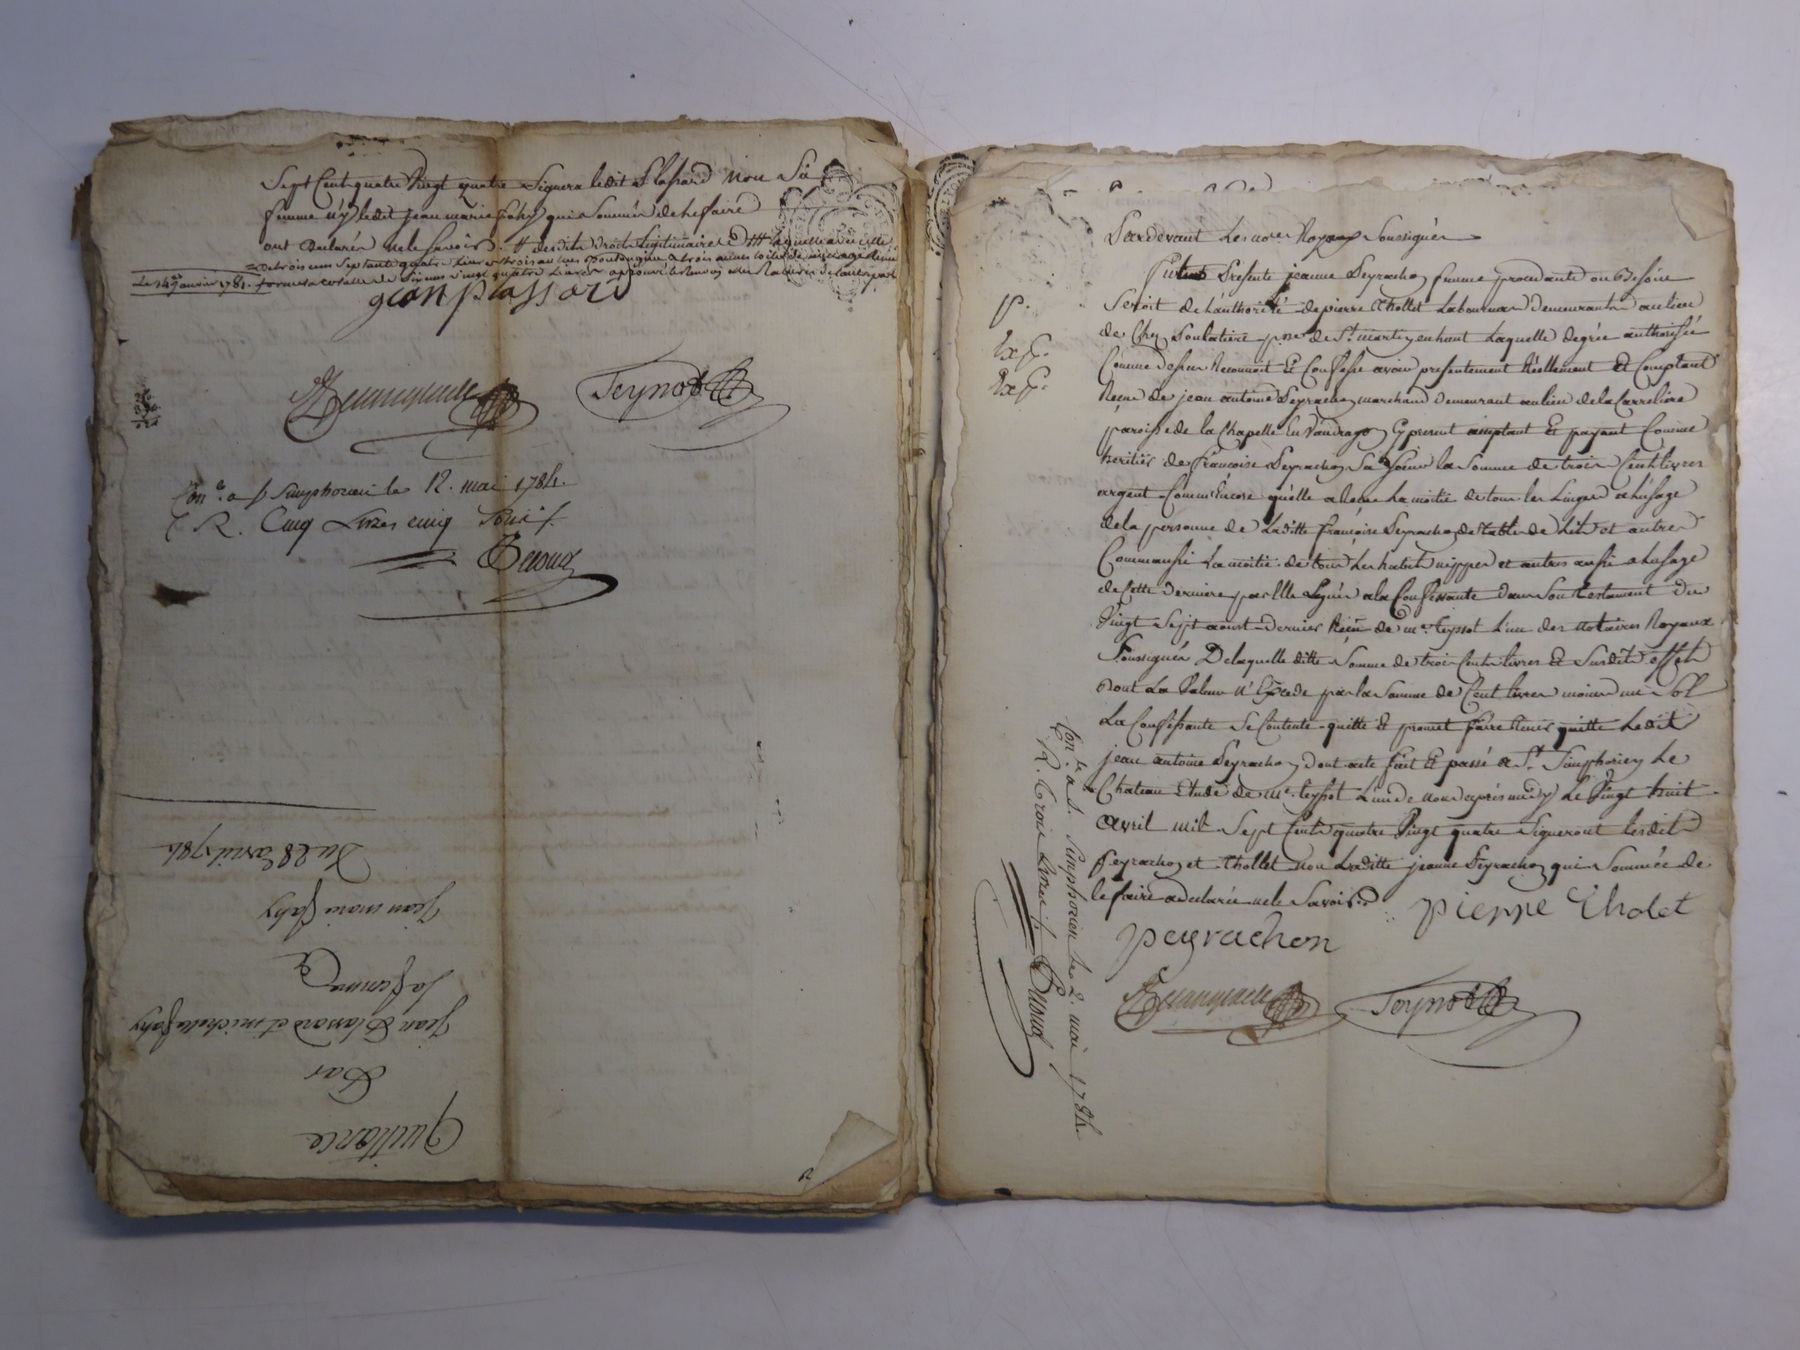 Sept Cent quatre Vingt quatre Signera ledit Plassard Non Sa
femme n'y ledit jean marie Fahy qui Sommés de le faire
ont Declarés ne le Savoir. # desdits droits Legitimaires ### laquelle avec celle
de trois cens Septante quatre Livres trois
Le 14e janvier 1781. forment celle de Six cens vingt quatre Livres
jean plassard
Teynot
Con.lé a S Simphorien le 12. mai 1784.
R. Cinq Livres cinq Sous
Quittance
Par
Jean Plassard et michelle Fahy
Sa femme
a
Jean marie Fahy
Du 28e avril 1784
Pardevant Les nores Royaux Soussignés
fut Presente jeanne Peyrachon femme procedante ou Besoin
Seroit de L'authorité de pierre Thollet Laboureur Demeurants au lieu
de Chez Soulatiere psse de St. martin en haut Laquelle degrée authorisée
Comme dessus Reconnoit Et Confesse avoir presentement Réellement Et Comptant
Receu de jean antoine Peyrachon marchand Demeurant au lieu de la Carreliere
paroisse de la Chapelle En Vaudragon Cy present acceptant Et payant Comme
heritier de francoise Peyrachon Sa Soeur la Somme de trois Cent livres
argent Comm'Encore qu'elle a Receu La moitié de tous les Linges a L'usage
de la personne de Laditte francoise Peyrachon de table de Lit et autres
Comm'aussi La moitié de tous Les habits nippes et autres aussi a Lusage
de Cette derniere par Elle Legués a la Confessante dans Son testament du
Vingt Sept aoust Dernier Reçu de me. teyssot L'un des notaires Royaux
Soussignés De laquelle ditte Somme de trois Cent livres Et Susdits effets
dont La Valeur n'Excede pas la Somme de Cent livres moins un Sol
La Confessante Se Contente quitte Et promet faire tenir quitte Ledit
jean antoine Peyrachon dont acte fait Et passé a St. Simphorien Le
Chateau Etude de me. teyssot L'un de nous après midy Le Vingt huit
avril mil Sept Cents quatre Vingt quatre Signeront lesdits
Peyrachon et Thollet non Laditte jeanne Peyrachon qui Sommée de
le faire a declarée ne le Savoir.
pierre tholet
peyrachon
Teynot
Con.lé a S. Simphorien Le 2. mai 1784.
R. trois Livres